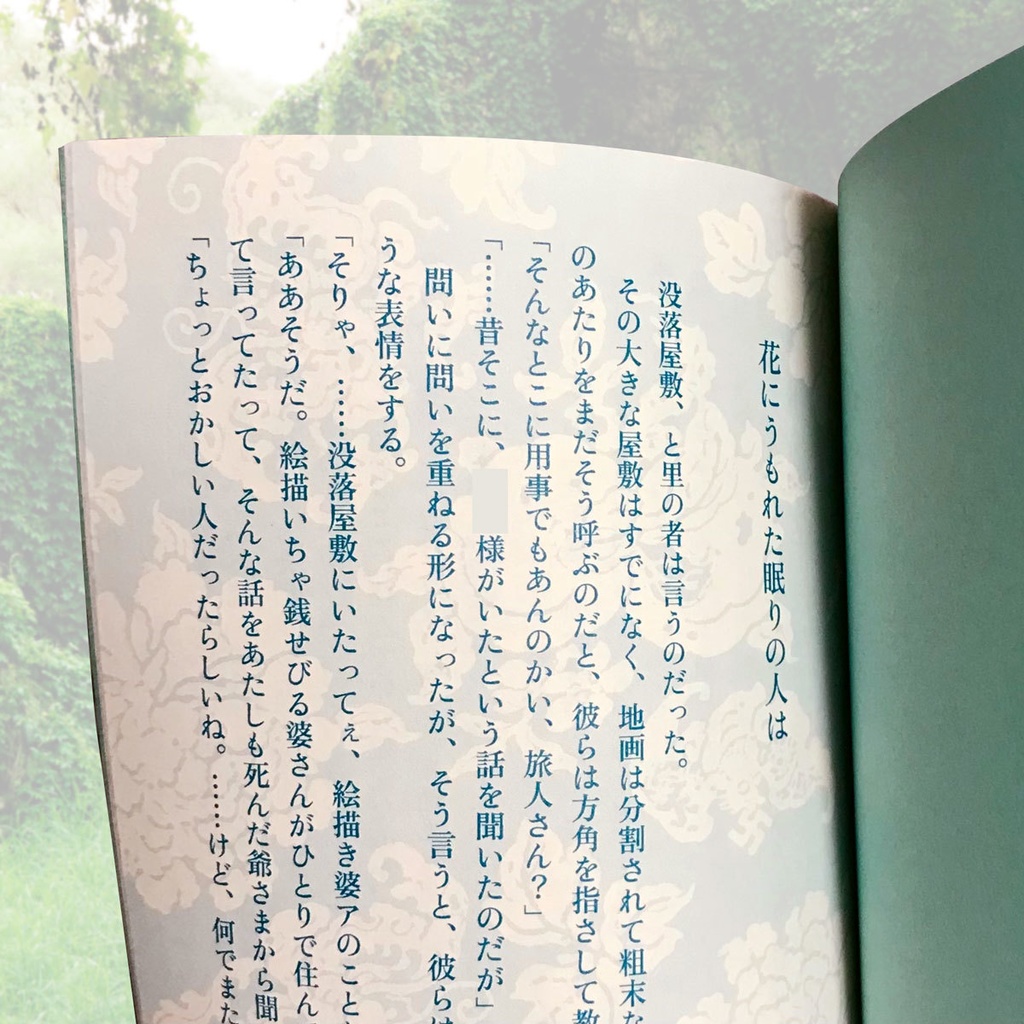 花にうもれた眠りの人は
没落屋敷、と里の者は言うのだった。
その大きな屋敷はすでになく、地画は分割されて粗末な
のあたりをまだそう呼ぶのだと、彼らは方角を指さして教
「そんなとこに用事でもあんのかい、旅人さん？」
「……昔そこに、様がいたという話を聞いたのだが」
問いに問いを重ねる形になったが、そう言うと、彼らは
うな表情をする。
「そりゃ、……没落屋敷にいたってぇ、絵描き婆アのこと
「ああそうだ。絵描いちゃ銭せびる婆さんがひとりで住ん
て言ってたって、そんな話をあたしも死んだ爺さまから聞
「ちょっとおかしい人だったらしいね。……けど、何でまた